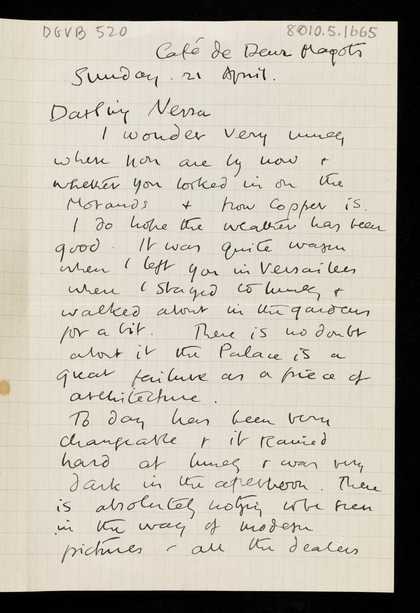 DGVB 520 8010.5.1665
Café de Deux Magots
Sunday. 21 April.
Darling Nessa
I wonder very much
where you are by now &
whether you looked in on the
Morands & how Copper is.
I do hope the weather has been
good. It was quite warm
when I left you in Versailles
where I stayed to lunch &
walked about in the gardens
for a bit. There is no doubt
about it the Palace is a
great failure as a piece of
architecture.
To day has been very
changeable & it rained
hard at lunch & was very
dark in the afternoon. There
is absolutely nothing to be seen
in the way of modern
pictures & all the dealers